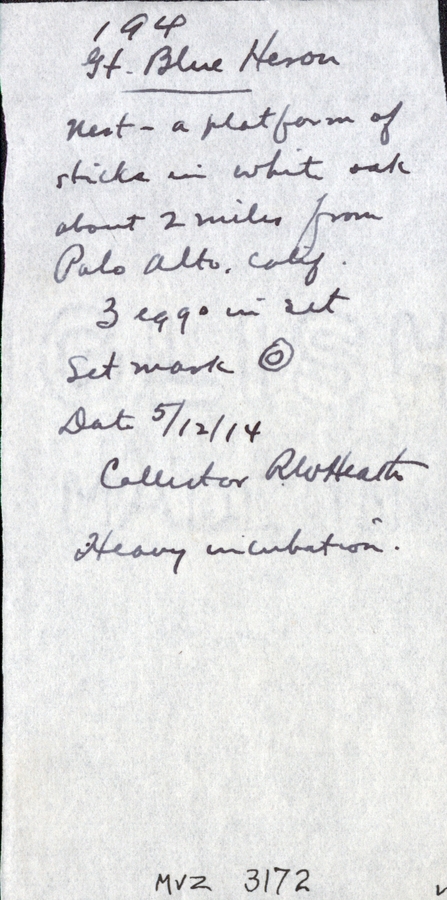 194
Gt. Blue Heron
Nest - a platform of
sticks in white oak
about 2 miles from
Palo Alto. Calif.
3 eggs in set
Set mark ©
Date 5/12/14
Collector RWHeath
Heavy incubation.
MVZ 3172